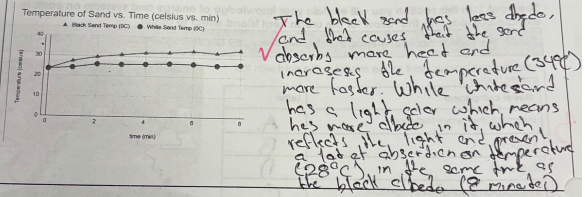 Temperature of Sand vs. Time (celsius vs. min)
▲ Black Sand Temp (0C) ● White Sand Temp (0C)
Temperature (celsius)
40
30
20
10
0
0 2 4 6 8
time (min)
The black sand has less albedo,
and that causes that the sand
absorbs more heat and
increases the temperature (34°C)
more faster. While white sand
has a light color which means
has more albedo in it, which
reflects the light and prevent
a lot of absordion on temperature
(28°C) in the same time as
the black albedo (8 minutes)